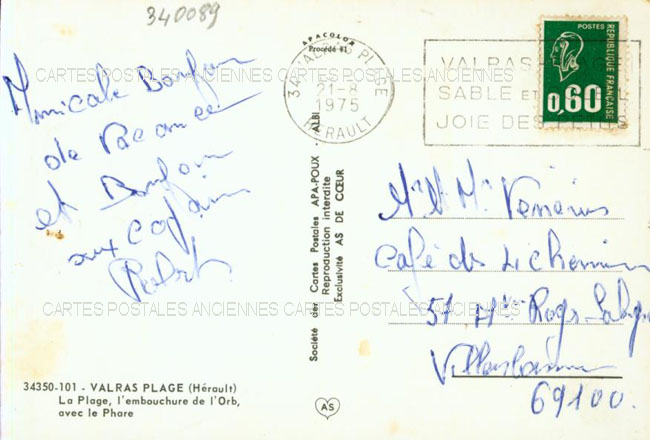 340089
APACOLOR
Procédé 81
Amicale Bonjour
de Vacances
et Bonjour
aux Copains
Robert
34 VALRAS PLAGE
21-8
1975
HERAULT
VALRAS
SABLE et
JOIE DES PETITS
POSTES
REPUBLIQUE FRANÇAISE
0,60
CARTES POSTALES ANCIENNES CARTES POSTALES ANCIENNES
Société des Cartes Postales APA-POUX - ALBI
Reproduction interdite
Exclusivité AS DE CŒUR
Mr
Café des
51
69100.
CARTES POSTALES ANCIENNES CARTES POSTALES ANCIENNES
34350-101 - VALRAS PLAGE (Hérault)
La Plage, l'embouchure de l'Orb,
avec le Phare
AS